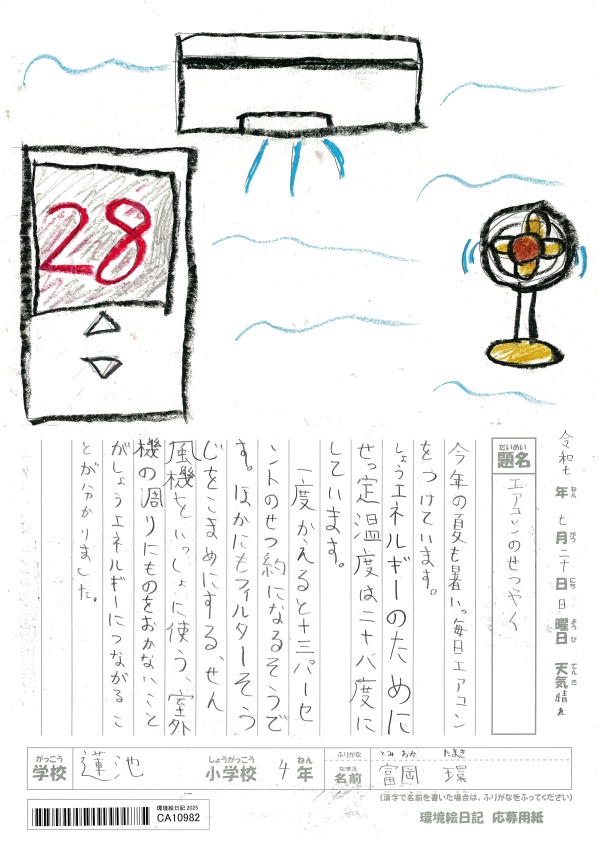 28
令和七年七月二十日日曜日天気晴れ
ねん がつ にち ようび てんき
だいめい
題名
エアコンのせつやく
今年の夏も暑い。毎日エアコン
をつけています。
しょうエネルギーのために
せっ定温度は二十八度に
しています。
一度かえると十三パーセ
ントのせつ約になるそうで
す。ほかにもフィルターそう
じをこまめにする、せん
風機といっしょに使う、室外
機の周りにものをおかないこと
がしょうエネルギーにつながるこ
とが分かりました。
がっこう
学校
蓮池
しょうがっこう
小学校
4
ねん
年
ふりがな
とみ おか たまき
なまえ
名前
富岡 環
(漢字で名前を書いた場合は、ふりがなをふってください)
環境絵日記 2025
CA10982
環境絵日記 応募用紙